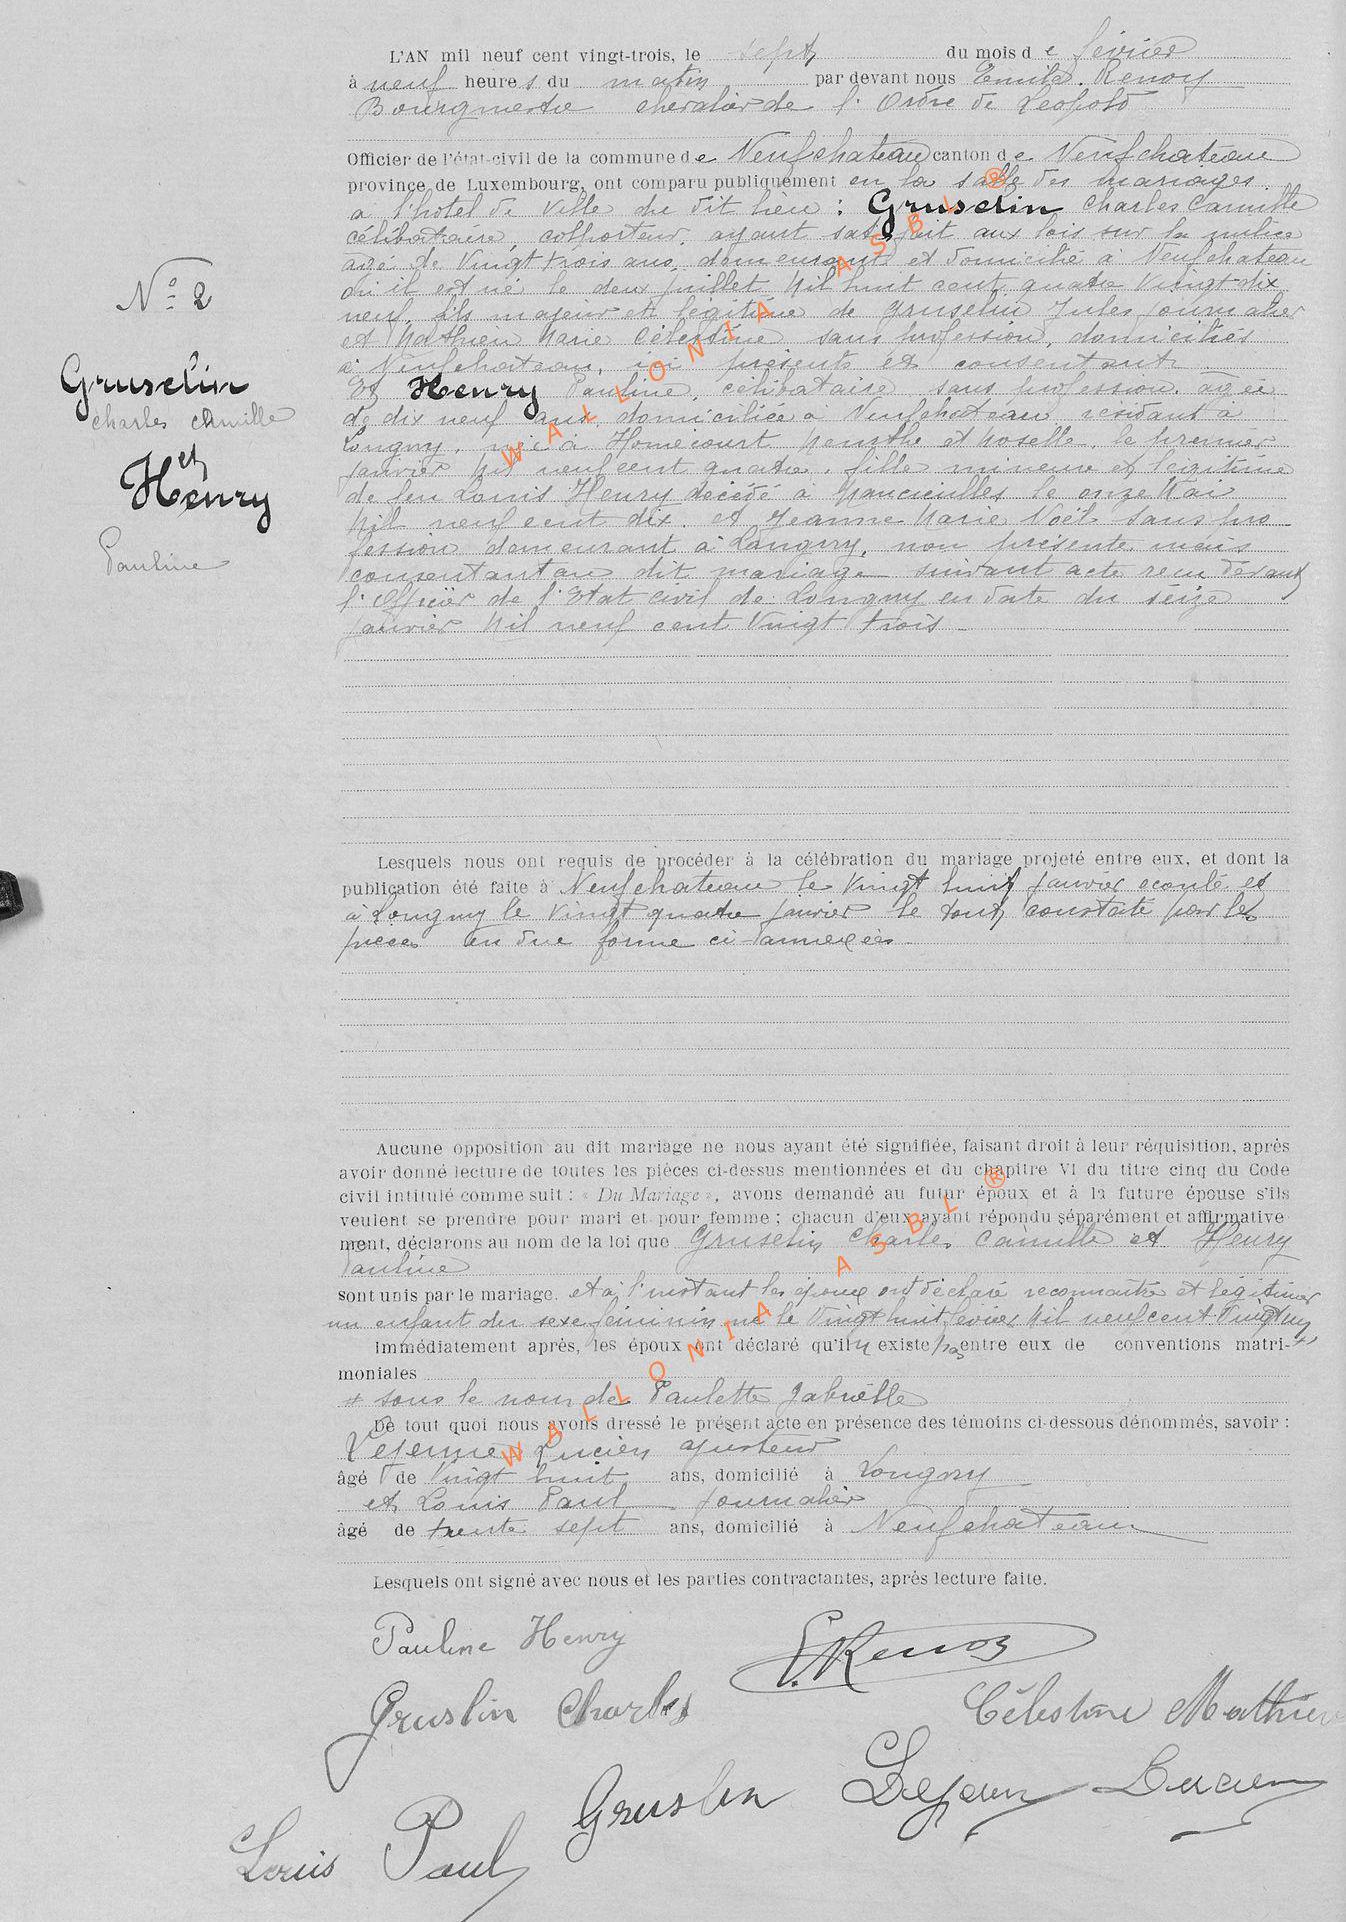 L'AN mil neuf cent vingt-trois, le sept du mois de février
à neuf heures du matin par devant nous Emile Renoy
Bourgmestre chevalier de l'Ordre de Léopold
Officier de l'état-civil de la commune de Neufchateau canton de Neufchateau
province de Luxembourg, ont comparu publiquement en la salle des mariages
a l'hotel de ville du dit lieu : Gruselin Charles Camille
célibataire, colporteur, ayant satisfait aux lois sur la milice
agé de vingt trois ans, demeurant et domicilié a Neufchateau
où il est né le deux juillet Mil huit cent quatre vingt-dix
neuf, fils majeur et légitime de Gruselin Jules journalier
et Mathieu Marie Célestine sans profession, domiciliés
à Neufchateau, ici présents et consentant
Et Henry Pauline, célibataire sans profession, agée
de dix neuf ans, domiciliée a Neufchateau résidant a
Longwy, née à Homécourt Meurthe et Moselle, le premier
janvier Mil neuf cent quatre, fille mineure et légitime
de feu Louis Henry décédé à Mancieulles le onze Mai
Mil neuf cent dix, et Jeanne Marie Noël sans pro
fession demeurant à Longwy, non présente mais
consentant au dit mariage suivant acte recu devant
l'Officier de l'Etat civil de Longwy en date du seize
janvier Mil neuf cent Vingt trois
N° 2
Gruselin
Charles Camille
et
Henry
Pauline
Lesquels nous ont requis de procéder à la célébration du mariage projeté entre eux, et dont la
publication été faite à Neufchateau le vingt huit janvier ecoulé et
à Longwy le vingt quatre janvier le tout constaté par les
pièces en due forme ci-annexées
Aucune opposition au dit mariage ne nous ayant été signifiée, faisant droit à leur réquisition, après
avoir donné lecture de toutes les pièces ci-dessus mentionnées et du chapitre VI du titre cinq du Code
civil intitulé comme suit : « Du Mariage », avons demandé au futur époux et à la future épouse s'ils
veulent se prendre pour mari et pour femme ; chacun d'eux ayant répondu séparément et affirmative
ment, déclarons au nom de la loi que Gruselin Charles Camille et Henry
Pauline
sont unis par le mariage. et à l'instant les époux ont déclaré reconnaitre et légitimer
un enfant du sexe féminin né le Vingt huit février Mil neuf cent Vingt un
Immédiatement après, les époux ont déclaré qu'il n existe pas entre eux de conventions matri-
moniales
+ sous le nom de Paulette Gabrielle
De tout quoi nous avons dressé le présent acte en présence des témoins ci-dessous dénommés, savoir :
Lejeune Lucien ajusteur
âgé de vingt huit ans, domicilié à Longwy
et Louis Paul journalier
âgé de trente sept ans, domicilié à Neufchateau
Lesquels ont signé avec nous et les parties contractantes, après lecture faite.
Pauline Henry
E. Renoy
Gruslin Charles
Célestine Mathieu
Gruslin
Lejeune Lucien
Louis Paul
WALLONIA ASBL ®
WALLONIA ASBL ®